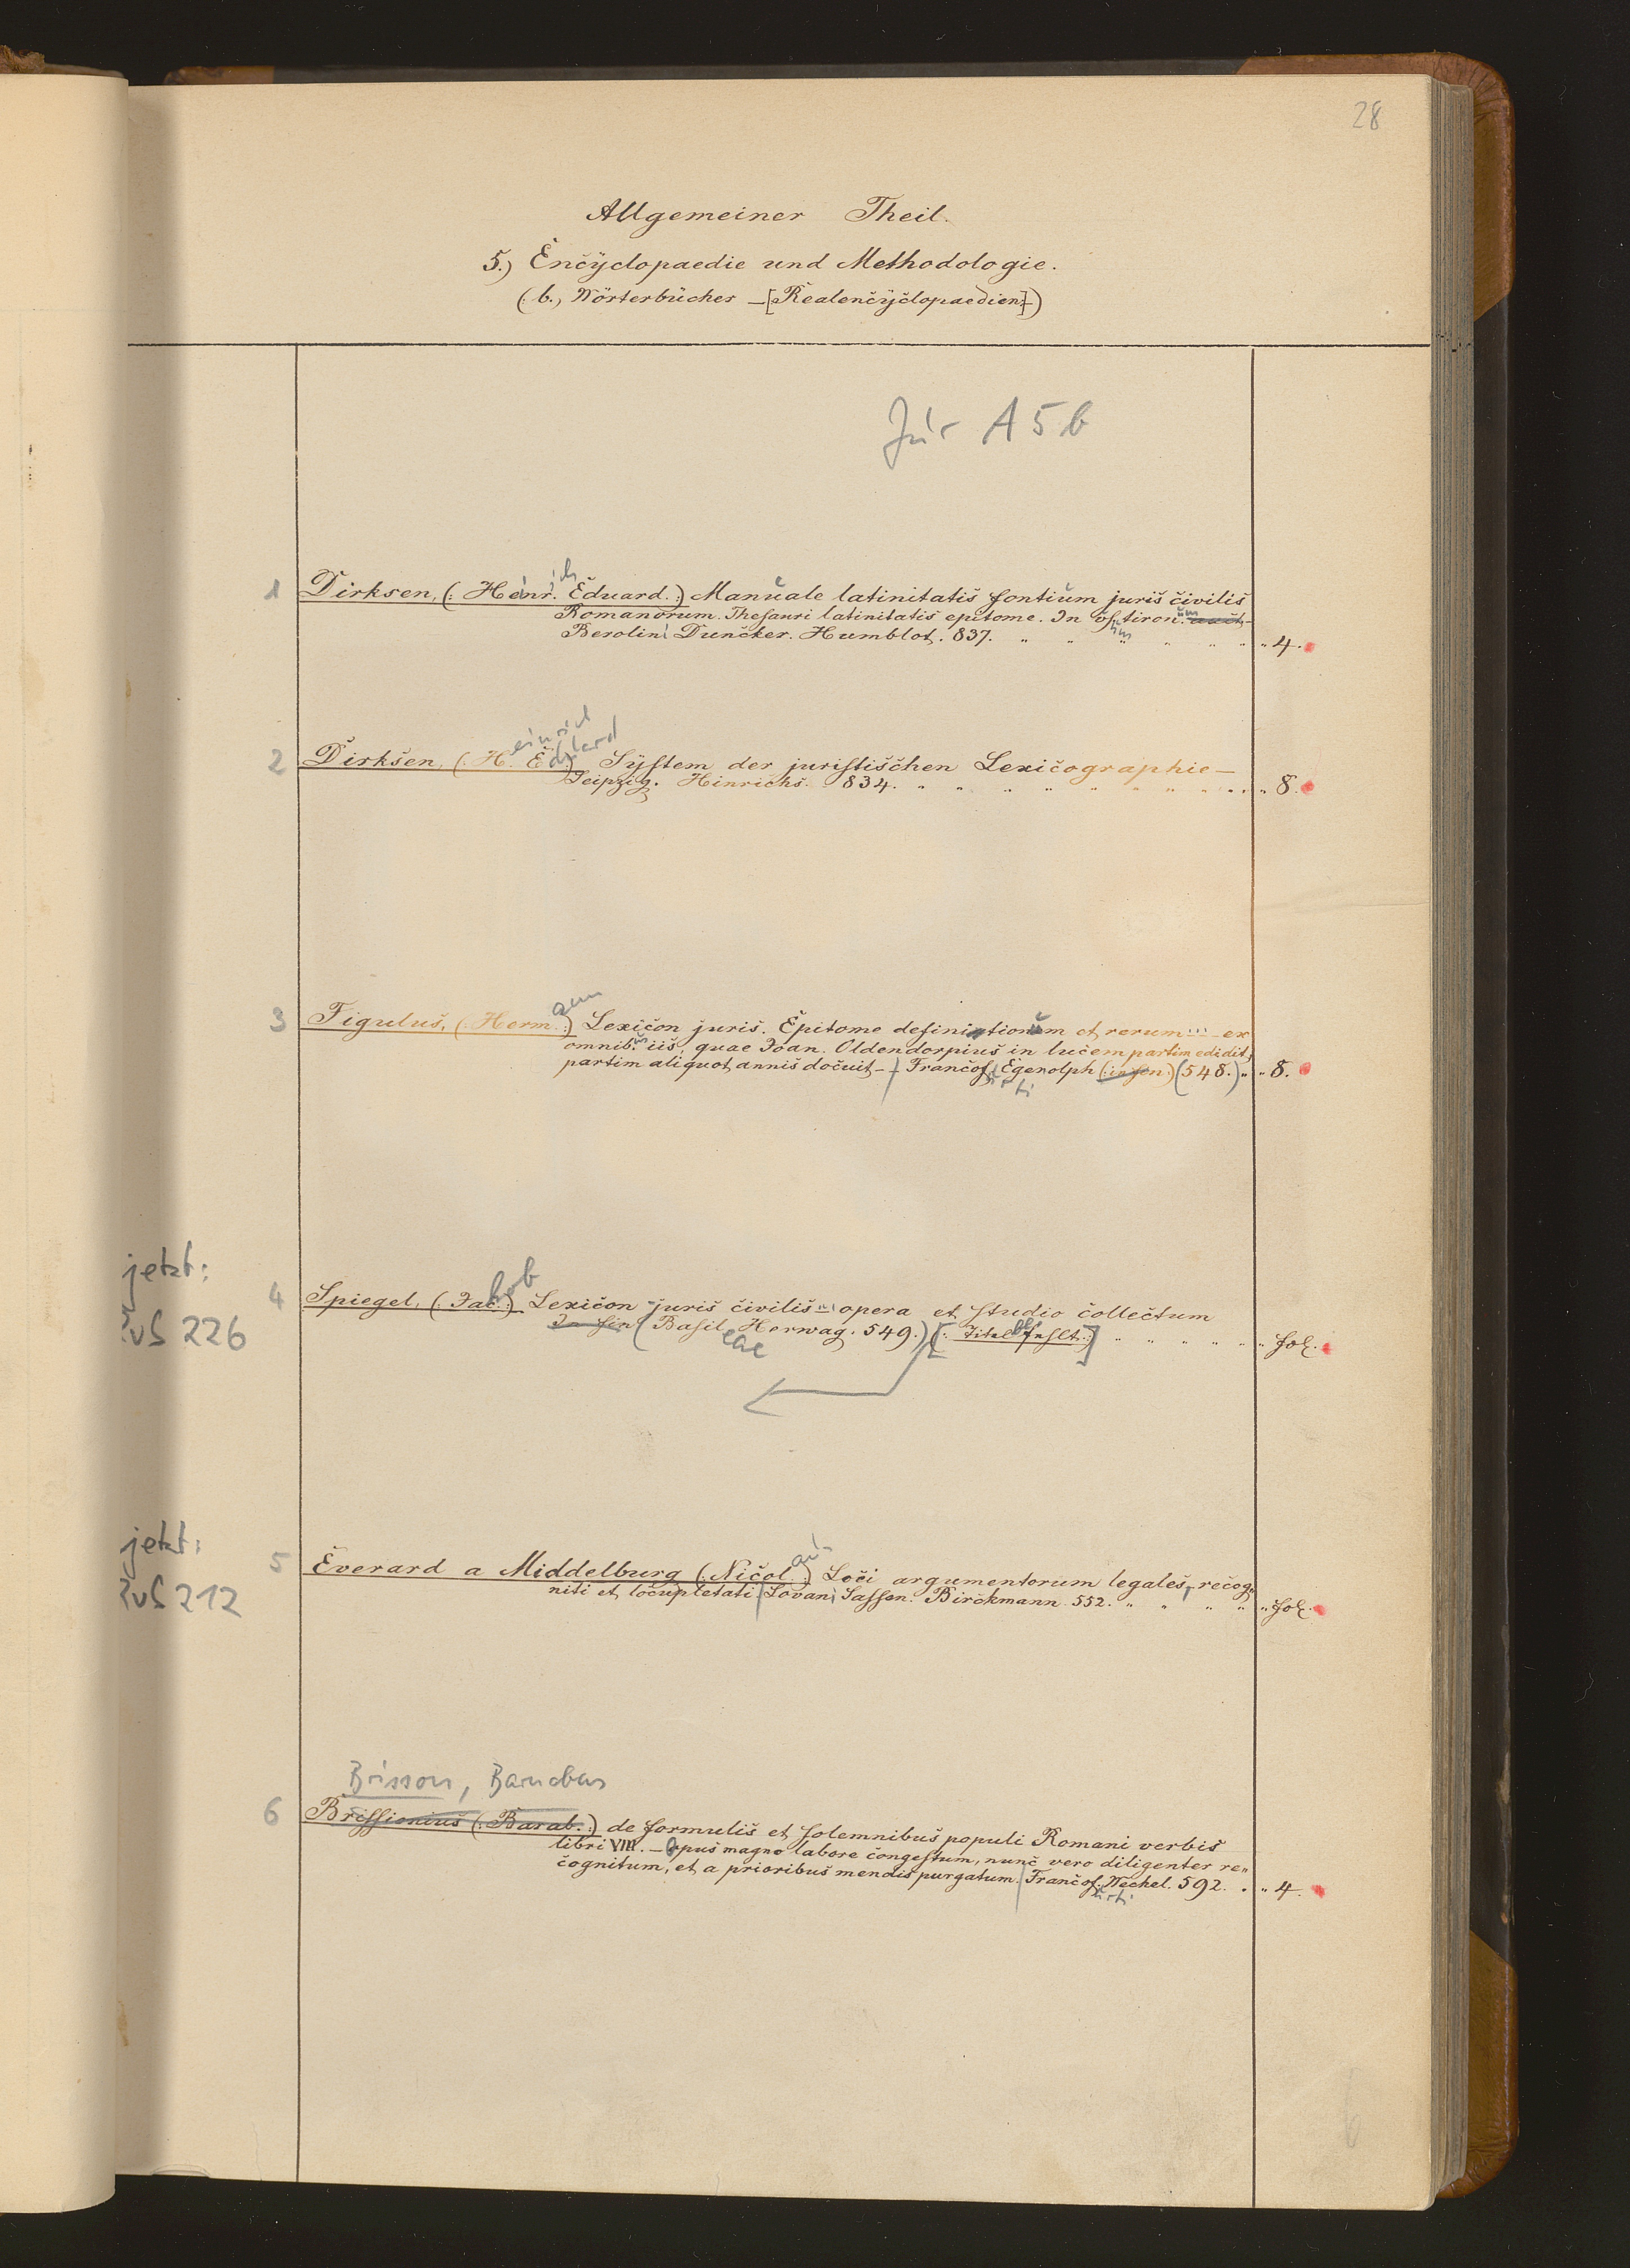 28
Allgemeiner Theil.
5.) Encyclopaedie und Methodologie.
(b., Wörterbücher – [Realencyclopaedien] –)
Jur A 5 b
1 Dirksen, (: Henr. Eduard.:) Manuale latinitatis fontium juris civilis
Romanorum. Thesauri latinitatis epitome. In us. tiron.
Berolini Duncker. Humblot. 837. " " " " " " " 4.
2 Dirksen, (: H. Ed.:) System der juristischen Lexicographie –
einrich
Leipzig. Hinrichs. 834. " " " " " " " " " 8.
3 Figulus, (: Herm.:) Lexicon juris. Epitome definitionum et rerum ... – ex
omnib. iis, quae Joan. Oldendorpius in lucem partim edidit,
partim aliquot annis docuit – Francof. Egenolph (: in fin:) (548.) " " 8.
urti
jetzt:
4 Spiegel, (: Jac.:) Lexicon juris civilis ... opera et studio collectum
226
In fin (Basil Herwag. 549.) [: Titelbl fehlt :] " " " " " fol.
eae
jetzt:
5 Everard a Middelburg (: Nicol.:) Loci argumentorum legales, – recog„
212
niti et locupletati. Lovani Sassen. Birckmann 552. " " " " " fol.
Brisson, Barnabas
6 Brissionius (: Barab.:) de formulis et solemnibus populi Romani verbis
libri VIII. – Opus magno labore congestum, nunc vero diligenter re„
cognitum, et a prioribus mendis purgatum. Francof. Wechel. 592. " " 4.
urti